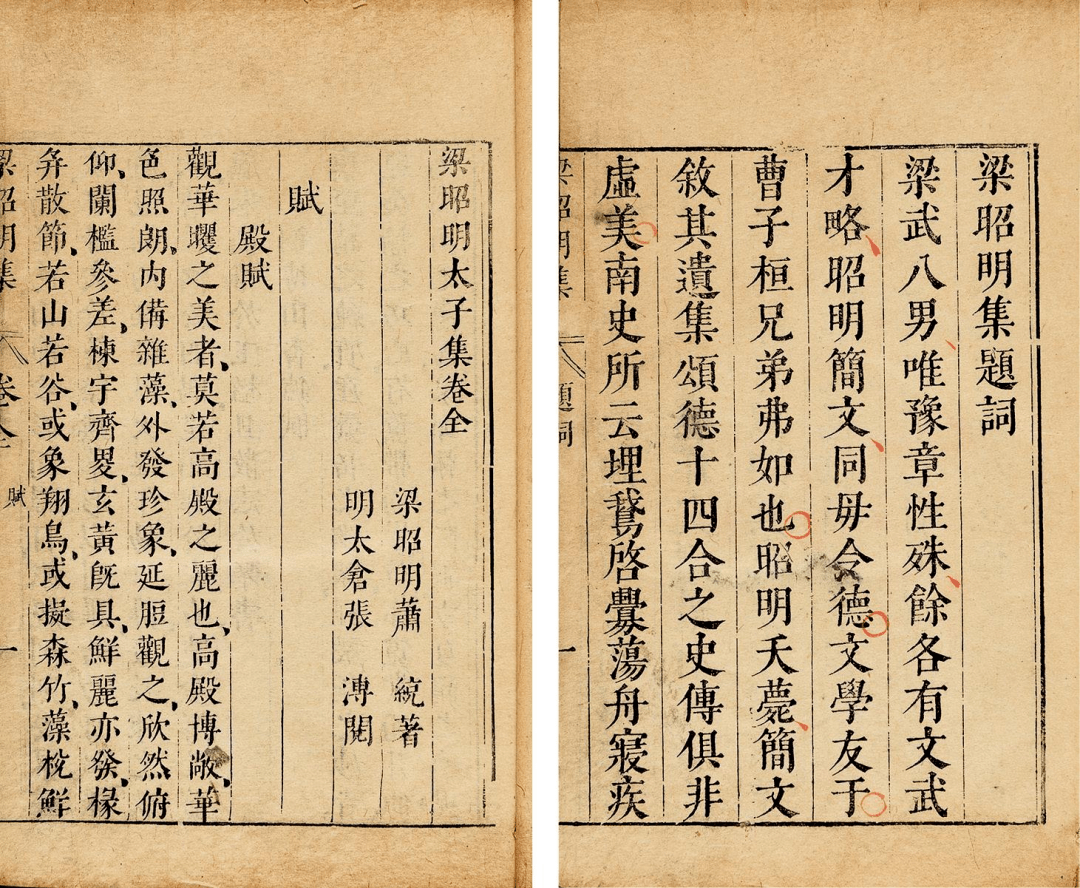 梁昭明集題詞
梁武八男唯豫章性殊餘各有文武
才略昭明簡文同母令德文學友于
曹子桓兄弟弗如也昭明夭薨簡文
敘其遺集頌德十四合之史傳俱非
虛美南史所云埋鵞啓釁蕩舟寢疾
梁昭明集
題詞
一
梁昭明太子集卷全
梁昭明蕭 統著
明太倉張 溥閱
賦
殿賦
觀華殿之美者莫若高殿之麗也高殿博敞華
色照朗内備雜藻外發珍象延脰觀之欣然俯
仰闌檻參差棟宇齊畟玄黄既具鮮麗亦發椽
筭散節若山若谷或象翔鳥或擬森竹藻梲鮮
梁昭明集
卷全
賦
一